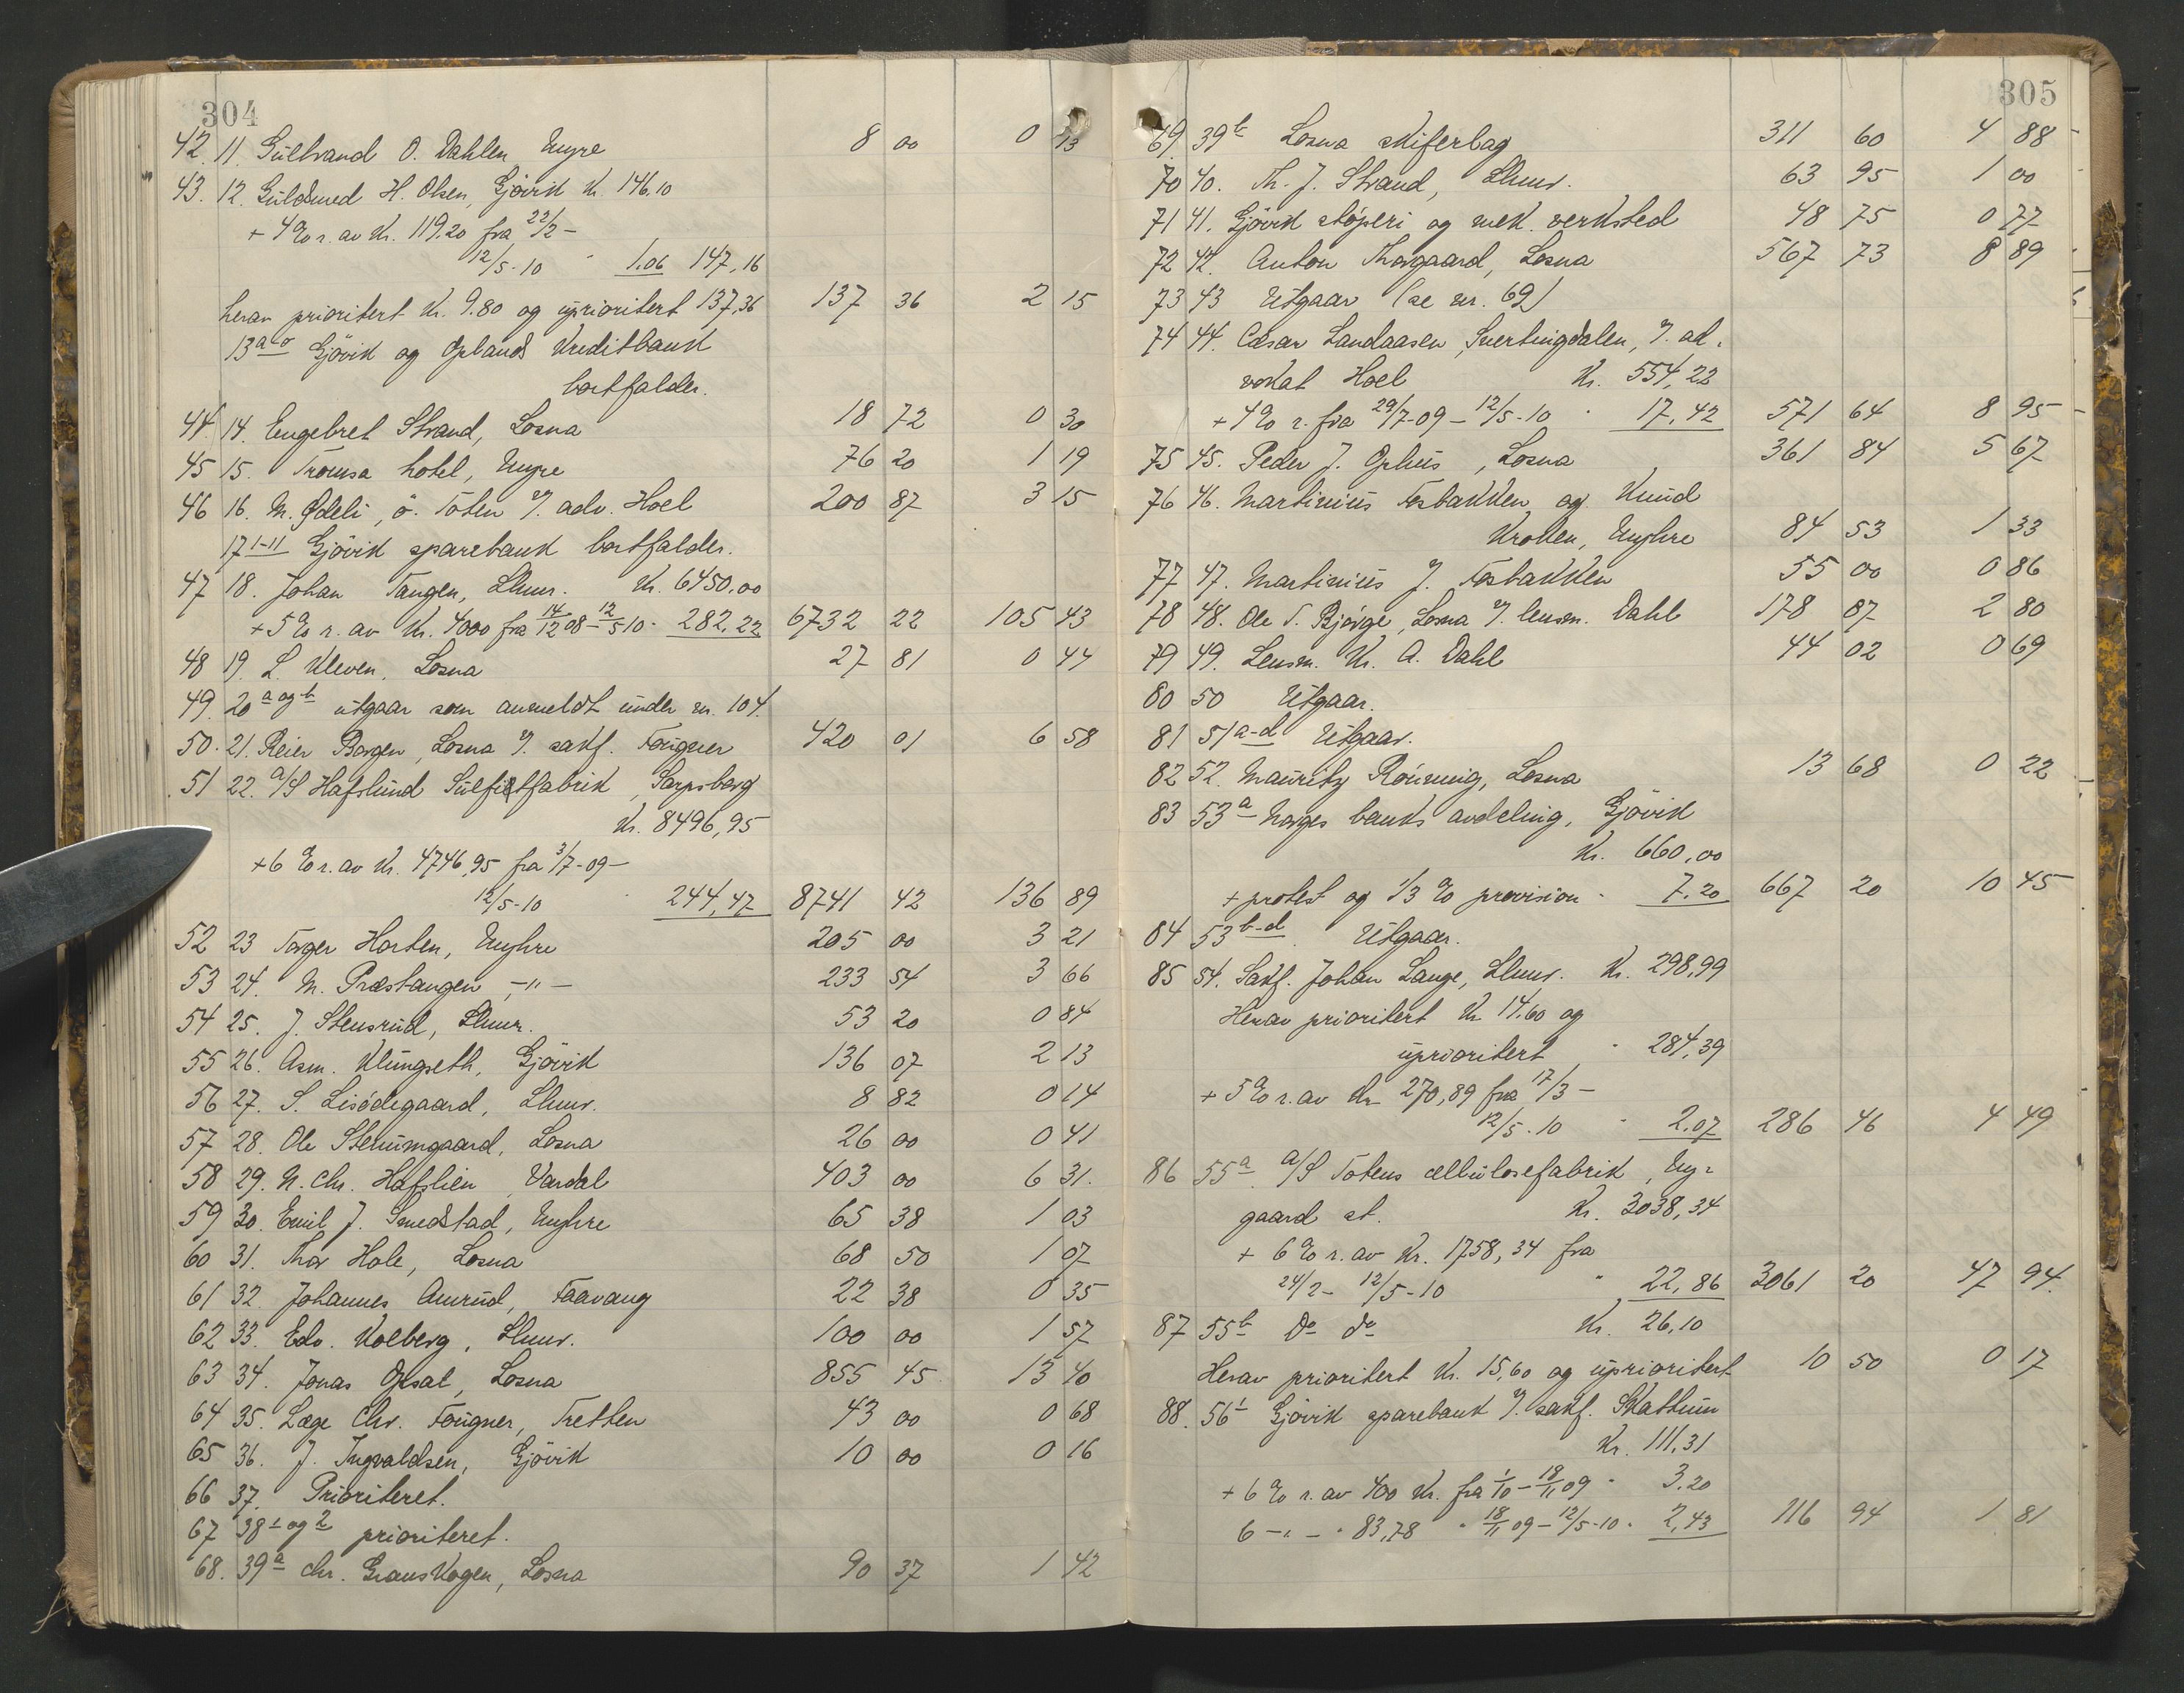 304
42. 11. Gulbrand O. Dahlen, Engre 8 00 0 13
43. 12. Guldsmed H. Olsen, Gjövik Kr. 146.10
+ 4% r. av Kr. 119.20 fra 22/2 -
12/5-10 " 1.06 147,16
herav prioritert Kr. 9.80 og uprioritert 137,36 137 36 2 15
13 a-o Gjövik og Oplands Kreditbank
bortfalder.
44 14. Engebret Strand, Losna 18 72 0 30
45 15. Tromsa hotel, Engre 76 20 1 19
46 16. M. Ødeli, ö. Toten v/. adv. Hoel 200 87 3 15
17 1-11 Gjövik sparebank bortfalder.
47 18. Johan Tangen, Lhmr. Kr. 6450.00
+ 5% r. av Kr. 4000 fra 14/12 08 - 12/5 10 - 282,22 6732 22 105 43
48 19. L. Kleven, Losna 27 81 0 44
49. 20 a og b utgaar som anmeldt under nr. 104.
50. 21. Reier Borgen, Losna v/. sakf. Fougner 420 01 6 58
51 22. A/S Hafslund Sulfitfabrik, Sarpsborg
Kr. 8496,95
+ 6% r. av Kr. 4746,95 fra 3/7-09 -
12/5-10 " 244,47 8741 42 136 89
52 23 Torger Horten, Enghre 205 00 3 21
53 24. M. Præstangen -"- 233 54 3 66
54 25. J. Stensrud, Lhmr. 53 20 0 84
55 26. Asm. Klungseth, Gjövik 136 07 2 13
56 27. S. Lisödegaard, Lhmr. 8 82 0 14
57 28. Ole Stenumgaard, Losna 26 00 0 41
58 29. N. Chr. Hafslien, Vardal 403 00 6 31.
59 30. Emil J. Smedstad, Enghre 65 38 1 03
60 31. Thor Hole, Losna 68 50 1 07
61 32. Johannes Amrud, Faavang 22 38 0 35
62 33. Edv. Kolberg, Lhmr. 100 00 1 57
63 34. Jonas Opsal, Losna 855 45 13 40
64 35. Læge Chr. Fougner, Tretten 43 00 0 68
65 36. J. Ingvaldsen, Gjövik 10 00 0 16
66 37. Prioriteret.
67 38 1 og 2 prioriteret.
68. 39 a Chr. Granskogen, Losna 90 37 1 42
305
69. 39 b Losna skiferlag 311 60 4 88
70 40. Th. J. Strand, Lhmr. 63 95 1 00
71 41. Gjövik støperi og mek. verksted 48 75 0 77
72 42. Anton Thorgaard, Losna 567 73 8 89
73 43 Utgaar (se nr. 69)
74 44. Cæsar Landaasen, Snertingdalen, v/. ad-
vokat Hoel Kr. 554,22
+ 4% r. fra 29/7-09 - 12/5-10 " 17,42 571 64 8 95
75 45. Peder J. Ophus, Losna 361 84 5 67
76 46. Martinius Fosbakken og Knud
Kroken, Enghre 84 53 1 33
77 47. Martinius J. Fosbakken 55 00 0 86
78 48. Ole T. Bjørge, Losna v/. lensm. Dahl 178 87 2 80
79 49. Lensm. Kr. A. Dahl 44 02 0 69
80 50 Utgaar.
81 51 a-d Utgaar.
82 52. Mauritz Rönning, Losna 13 68 0 22
83 53 a Norges banks avdeling, Gjövik
Kr. 660,00
+ protest og 1/3 % provision - 7.20 667 20 10 45
84 53 b-d Utgaar.
85 54. Sakf. Johan Lange, Lhmr. Kr. 298,99
Herav prioritert Kr 14.60 og
uprioritert " 284,39
+ 5% r. av Kr 270,89 fra 17/3 -
12/5-10 " 2.07 286 46 4 49
86 55 a. A/S Totens cellulosefabrik, Ny-
gaard st. Kr. 3038,34
+ 6% r. av Kr. 1758,34 fra
24/2 - 12/5-10 " 22,86 3061 20 47 94.
87 55 b Do do Kr. 26,10
Herav prioritert Kr. 15,60 og uprioritert 10 50 0 17
88. 56 1 Gjövik sparebank v/. sakf. Skattum
Kr. 111,31
+ 6% r. av 400 Kr. fra 1/10 - 18/11 09 " 3.20
6 -"- " 83,78 " 18/11 09 - 12/5-10 " 2,43 116 94 1 81